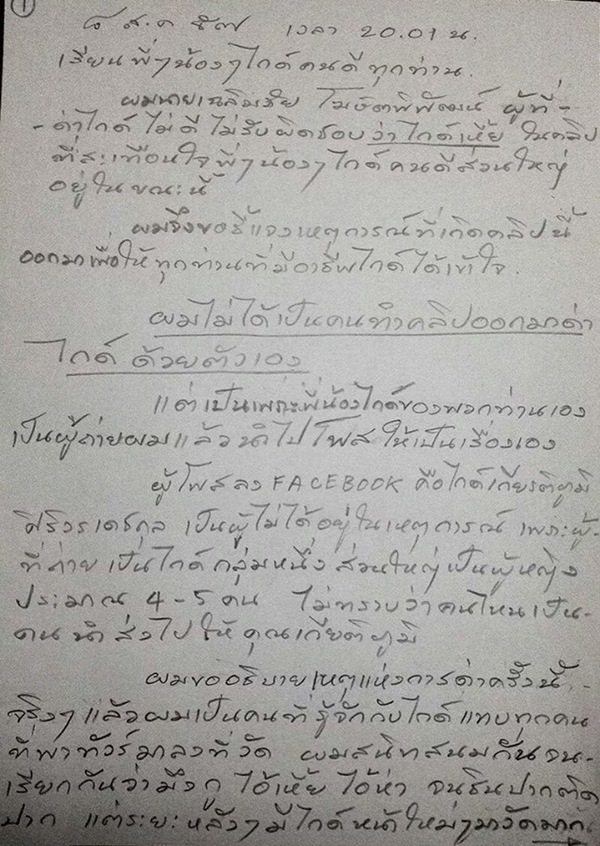 1
๘ ส.ค ๕๗ เวลา 20.01 น.
เรียนพี่ๆน้องๆไกด์คนดีทุกท่าน.
ผมนายเฉลิมชัย โฆษิตพิพัฒน์ ผู้ที่-
-ด่าไกด์ไม่ดีไม่รับผิดชอบว่าไกด์เหี้ย ในคลิป
ที่สะเทือนใจพี่ๆน้องๆไกด์คนดีส่วนใหญ่
อยู่ในขณะนี้
ผมจึงขอชี้แจงเหตุการณ์ที่เกิดคลิปนี้
ออกมาเพื่อให้ทุกท่านที่มีอาชีพไกด์ได้เข้าใจ.
ผมไม่ได้เป็นคนทำคลิปออกมาด่า
ไกด์ด้วยตัวเอง
แต่เป็นเพราะพี่น้องไกด์ของพวกท่านเอง
เป็นผู้ถ่ายผมแล้วนำไปโพสให้เป็นเรื่องเอง
ผู้โพสลง FACEBOOK คือไกด์เกียรติภูมิ
ศิริวรเดชกุล เป็นผู้ไม่ได้อยู่ในเหตุการณ์ เพราะผู้-
ที่ถ่ายเป็นไกด์กลุ่มหนึ่ง ส่วนใหญ่เป็นผู้หญิง
ประมาณ 4-5 คน ไม่ทราบว่าคนไหนเป็น-
คนนำส่งไปให้คุณเกียติภูมิ
ผมขออธิบายเหตุแห่งการด่าครั้งนี้
จริงๆแล้วผมเป็นคนที่รู้จักกับไกด์แทบทุกคน
ที่พาทัวร์มาลงที่วัด ผมสนิทสนมกันจน-
เรียกกันว่ามึงกู ไอ้เหี้ย ไอ้ห่า จนชินปากติด
ปาก แต่ระยะหลังๆมีไกด์หน้าใหม่ๆมาวัดมาก